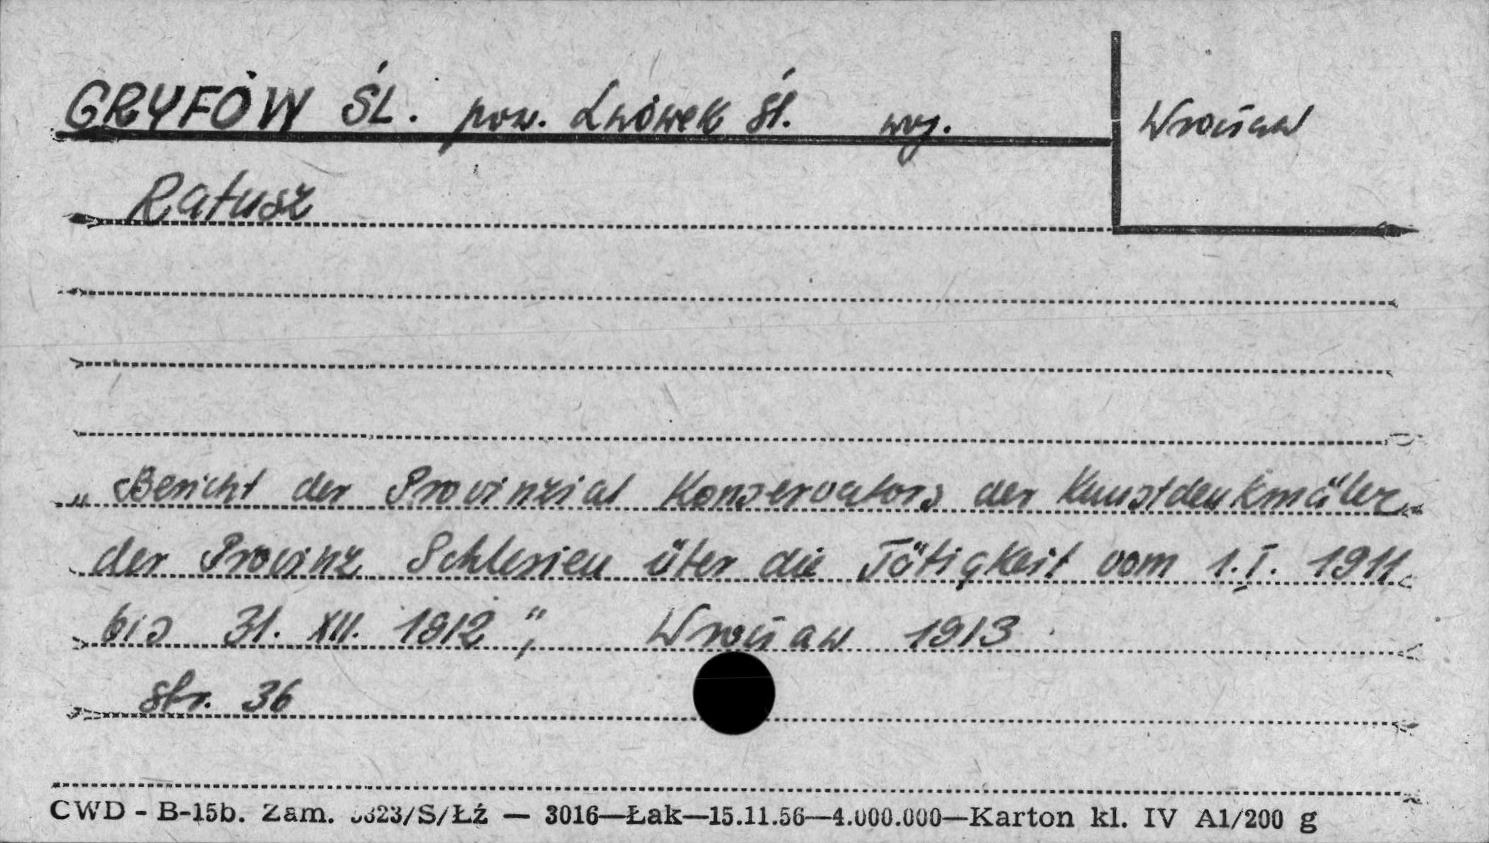 GRYFÓW ŚL. pow. Lwówek Śl. woj. Wrocław
Ratusz
„Bericht der Provinzial Konservators der Kunstdenkmäler
der Provinz Schlesien über die Tätigkeit vom 1.I. 1911
bis 31. XII. 1912", Wrocław 1913
str. 36
CWD - B-15b. Zam. 3623/S/Łź — 3016—Łak—15.11.56—4.000.000—Karton kl. IV A1/200 g